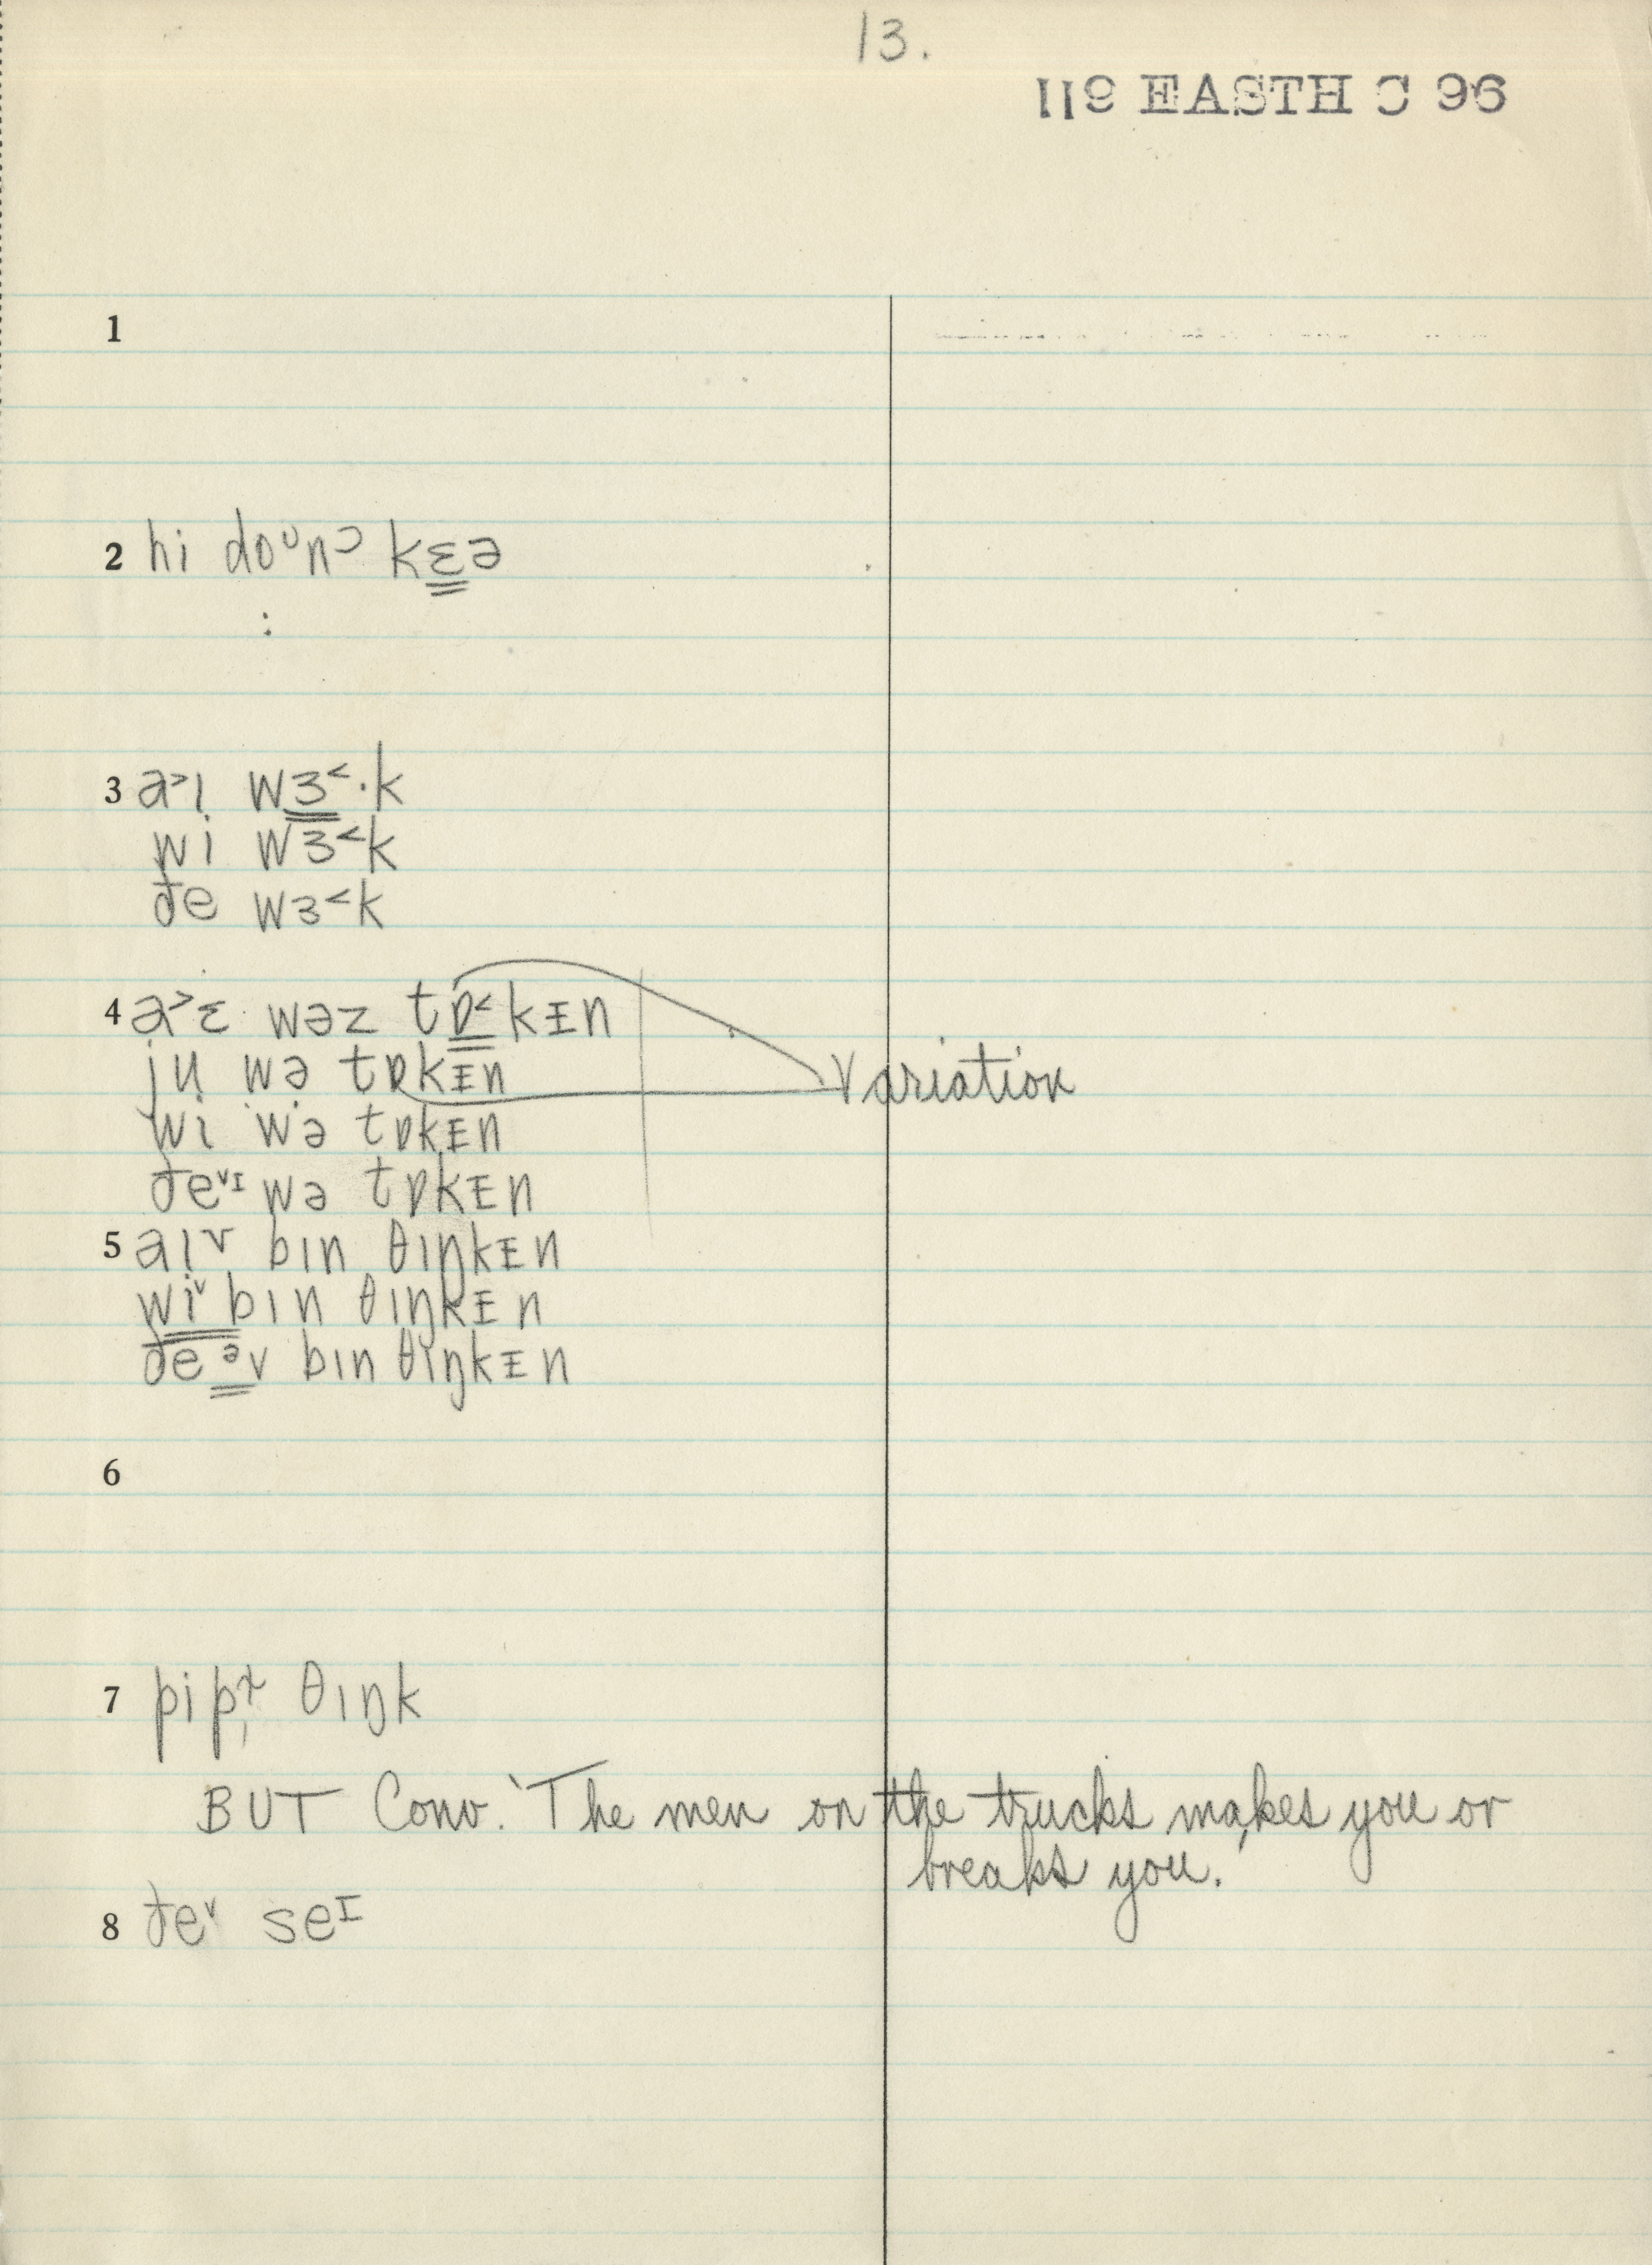 13.
119 EASTH C 96
1
2 hi doᶷnᵓ kɛə
:
3 a˃ɪ wɜ˂·k
wi wɜ˂k
ðe wɜ˂k
4 a˃ɛ wəz tɒ˂kɪn
ju wə tɒkɪn
Variation
wi wə tɒkɪn
ðe˅ᴵ wə tɒkɪn
5 aɪᵛ bɪn θɪŋkɪn
wiᵛ bɪn θɪŋkɪn
ðeᵊv bɪn θɪŋkɪn
6
7 θɪŋk
BUT Conv. 'The men on the trucks makes you or
breaks you.'
8 ðe˅ seᴵ